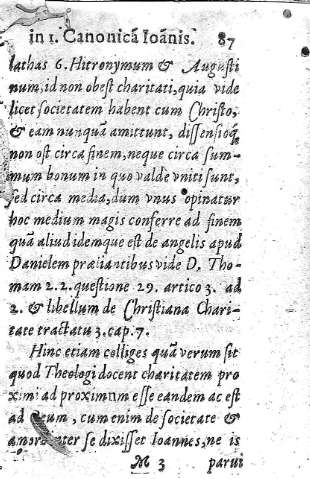 in 1. Canonicã Ioãnis. 87
lathas 6. Hitronymum & Augusti
num, id non obest charitati, quia vide
licet societatem habent cum Christo,
& eam nunquã amittunt, dissensioq́;
non ost circa finem, neque circa sum-
mum bonum in quo valde vniti sunt,
sed circa media, dum vnus opinatur
hoc medium magis conferre ad finem
quã aliud idemque est de angelis apud
Danielem præliantibus vide D. Tho-
mam 2.2. questione 29. artico 3. ad
2. & libellum de Christiana Chari-
tate tractatu 3. cap. 7.
Hinc etiam colliges quã verum sit
quod Theologi docent charitatem pro
ximi ad proximum esse eandem ac est
ad , cum enim de societate &
amore inter se dixisset Ioannes, ne is
M 3 parui